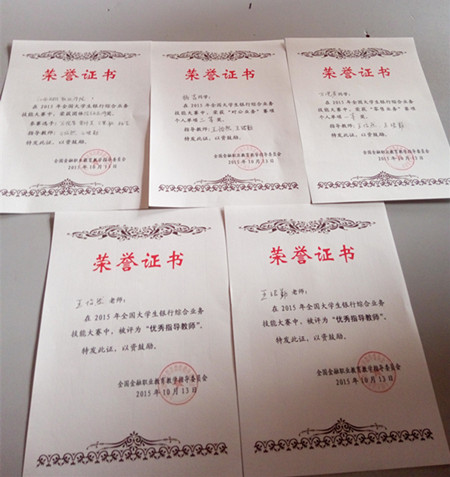 荣誉证书
在 2015 年全国大学生银行综合业务
技能大赛中，荣获团体
参赛选手：
指导教师：
特发此证，以资鼓励。
全国金融职业教育教学指导委员会
2015年10月13日
荣誉证书
同学：
在 2015 年全国大学生银行综合业务
技能大赛中，荣获“对公业务”赛项
个人单项三等奖。
指导教师：
特发此证，以资鼓励。
全国金融职业教育教学指导委员会
2015年10月13日
荣誉证书
同学：
在 2015 年全国大学生银行综合业务
技能大赛中，荣获
个人单项
指导教师：
特发此证，以资鼓励。
全国金融职业教育教学指导委员会
2015年10月13日
荣誉证书
老师：
在 2015 年全国大学生银行综合业务
技能大赛中，被评为“优秀指导教师”。
特发此证，以资鼓励。
全国金融职业教育教学指导委员会
2015年10月13日
荣誉证书
老师：
在 2015 年全国大学生银行综合业务
技能大赛中，被评为“优秀指导教师”。
特发此证，以资鼓励。
全国金融职业教育教学指导委员会
2015年10月13日